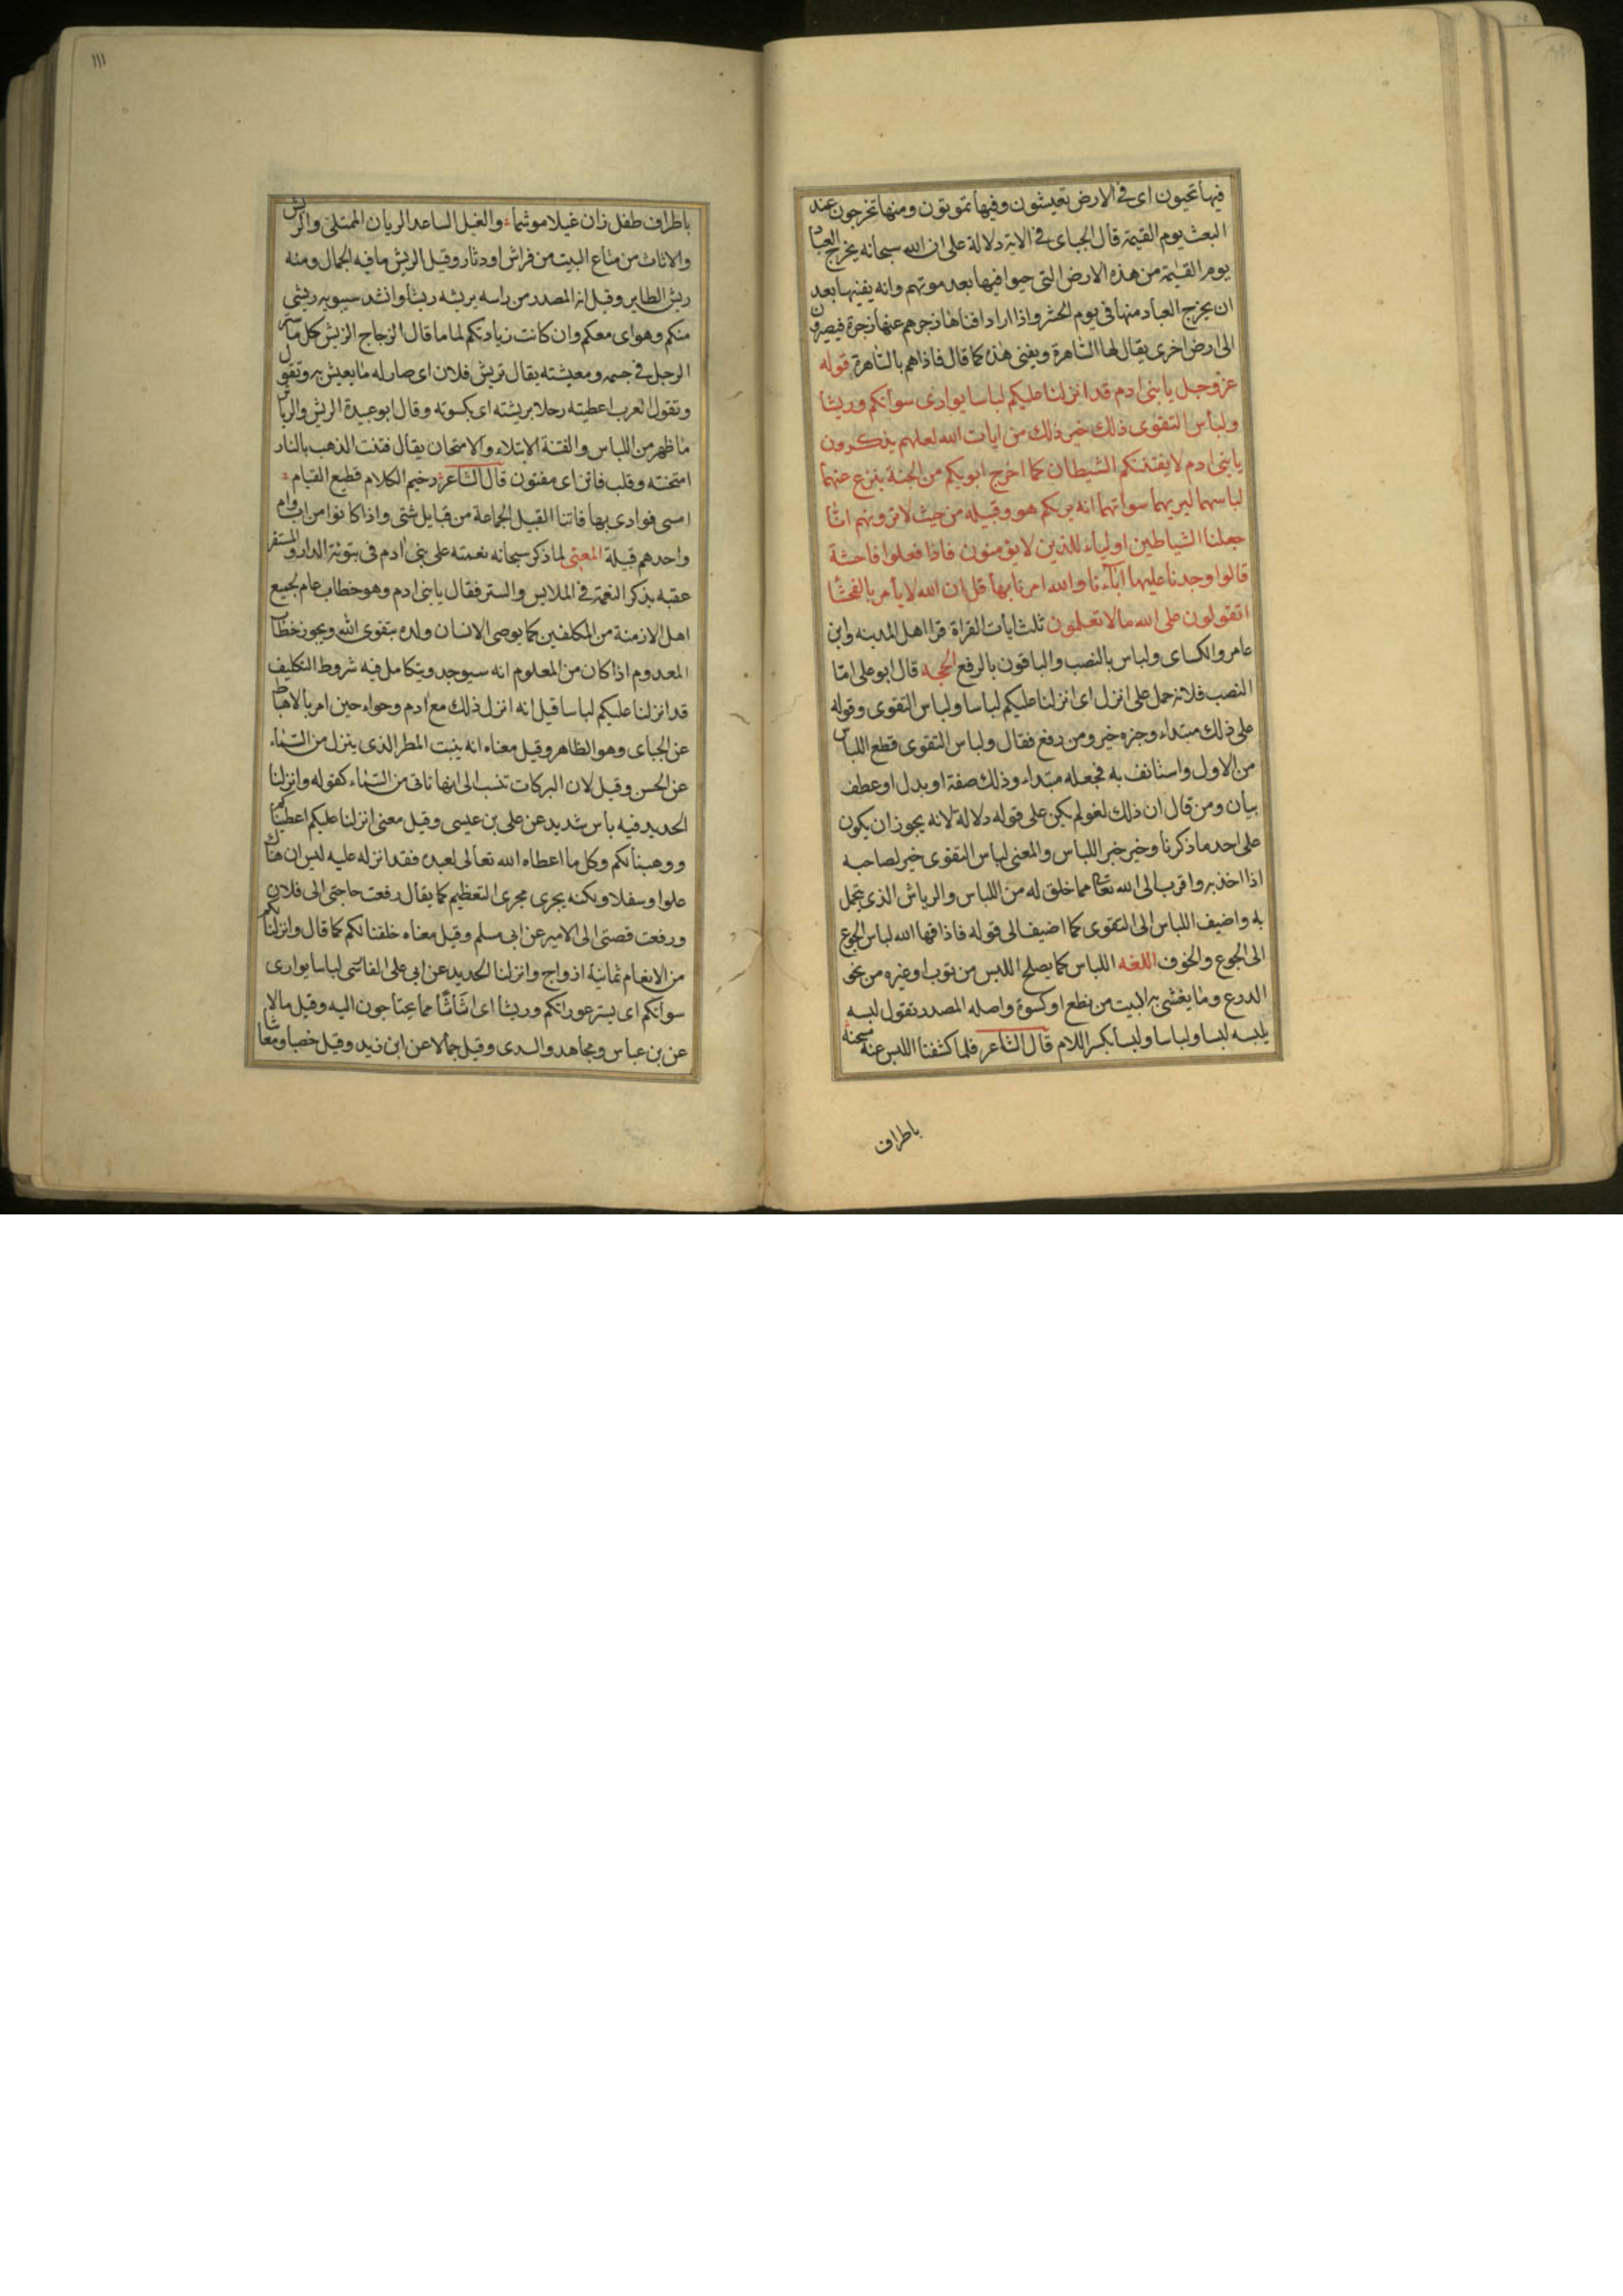 فيها تحيون اى فى الارض تعيشون وفيها تموتون ومنها تخرجون عند
البعث يوم القيمة قال الجباى فى الاية دلالة على ان الله سبحانه يخرج العباد
يوم القيمة من هذه الارض التى حيوا فيها بعد موتهم وانه يفنيها بعد
ان يخرج العباد منها فى يوم الحشر واذا اراد افناها زجرهم عنها زجرة فيصيرون
الى ارض اخرى يقال لها الساهرة ويفنى هذه كما قال فاذاهم بالساهرة قوله
عز وجل يا بنى ادم قد انزلنا عليكم لباسا يوارى سوأتكم وريشا
ولباس التقوى ذلك خير ذلك من ايات الله لعلهم يذكرون
يا بنى ادم لا يفتننكم الشيطان كما اخرج ابويكم من الجنة ينزع عنهما
لباسهما ليريهما سواتهما انه يريكم هو وقبيله من حيث لا ترونهم انا
جعلنا الشياطين اولياء للذين لا يؤمنون فاذا فعلوا فاحشة
قالوا وجدنا عليها اباءنا والله امرنا بها قل ان الله لا يأمر بالفحشا
اتقولون على الله مالا تعلمون ثلث ايات القراة قرا اهل المدينه وابن
عامر والكساى ولباس بالنصب والباقون بالرفع الحجه قال ابو على امّا
النصب فلانه حمل على انزل اى انزلنا عليكم لباسا ولباس التقوى وقوله
على ذلك مبتداء وجزه خير ومن رفع فقال ولباس التقوى قطع اللباس
من الاول واستانف به فجعله مبتداء وذلك صفة او بدل او عطف
بيان ومن قال ان ذلك لغو لم يكن على قوله دلالة لانه يجوز ان يكون
على احد ما ذكرنا وخير خبر اللباس والمعنى لباس التقوى خير لصاحبه
اذا اخذ به واقرب الى الله تعا مما خلق له من اللباس والرياش الذى يتجمل
به واضيف اللباس الى التقوى كما اضيف الى قوله فاذاقها الله لباس الجوع
الى الجوع والخوف اللغه اللباس كما يصلح اللبس من ثوب او غيره من نحو
الدرع وما يغشى به البيت من نطع او كسوة واصله المصدر تقول لبسه
يلبسه لبسا ولباسا ولبسا بكسر اللام قال الشاعر فلما كشفنا اللبس عنه مسحنه
باطراف
١١١
باطراف طفل زان غيلا موشما والغيل الساعد الريان الممتلى والريش
والاثاث من متاع البيت من فراش او دثار وقيل الريش ما فيه الجمال ومنه
ريش الطاير وقيل انه المصدر من راسه يريشه ريشا وانشد سيبويه ريشى
منكم وهواى معكم وان كانت زيادتكم لماما قال الزجاج الريش كل ما ستر
الرجل فى جسمه ومعيشته يقال تريش فلان اى صار له ما يعيش به وتقول
وتقول العرب اعطيته رحلا بريشته اى بكسوته وقال ابو عبيدة الريش والرياش
ما ظهر من اللباس والفتنة الابتلاء والامتحان يقال فتنت الذهب بالنار
امتحنته وقلب فاتن اى مفتون قال الشاعر رخيم الكلام قطيع القيام
امسى فوادى بها فاتنا القبيل الجماعة من قبايل شتى واذا كانوا من اب وام
واحد هم قبيلة المعنى لما ذكر سبحانه نعمته على بنى ادم فى تبوئة الدار والمستقر
عقبه بذكر النعمة فى الملابس والستر فقال يا بنى ادم وهو خطاب عام لجميع
اهل الازمنة من المكلفين كما يوصى الانسان ولده بتقوى الله ويجوز خطاب
المعدوم اذا كان من المعلوم انه سيوجد ويتكامل فيه شروط التكليف
قد انزلنا عليكم لباسا قيل انه انزل ذلك مع ادم وحواء حين امر بالاهباط
عن الجباى وهو الظاهر وقيل معناه انه ينبت المطر الذى ينزل من السماء
عن الحسن وقيل لان البركات تنسب الى انها تاتى من السماء كقوله وانزلنا
الحديد فيه باس شديد عن على بن عيسى وقيل معنى انزلنا عليكم اعطيناكم
ووهبنا لكم وكل ما اعطاه الله تعالى لعبده فقد انزله عليه ليس ان هناك
علوا وسفلا ولكنه يجرى مجرى التعظيم كما يقال رفعت حاجتى الى فلان
ورفعت قصتى الى الامير عن ابى مسلم وقيل معناه خلقنا لكم كما قال وانزلنا لكم
من الانعام ثمانية ازواج وانزلنا الحديد عن ابى على الفاسى لباسا يوارى
سوأتكم اى يستر عوراتكم وريشا اى اثاثا مما يحتاجون اليه وقيل مالا
عن بن عباس ومجاهد والسدى وقيل جمالا عن ابن زيد وقيل خصبا ومعاشا